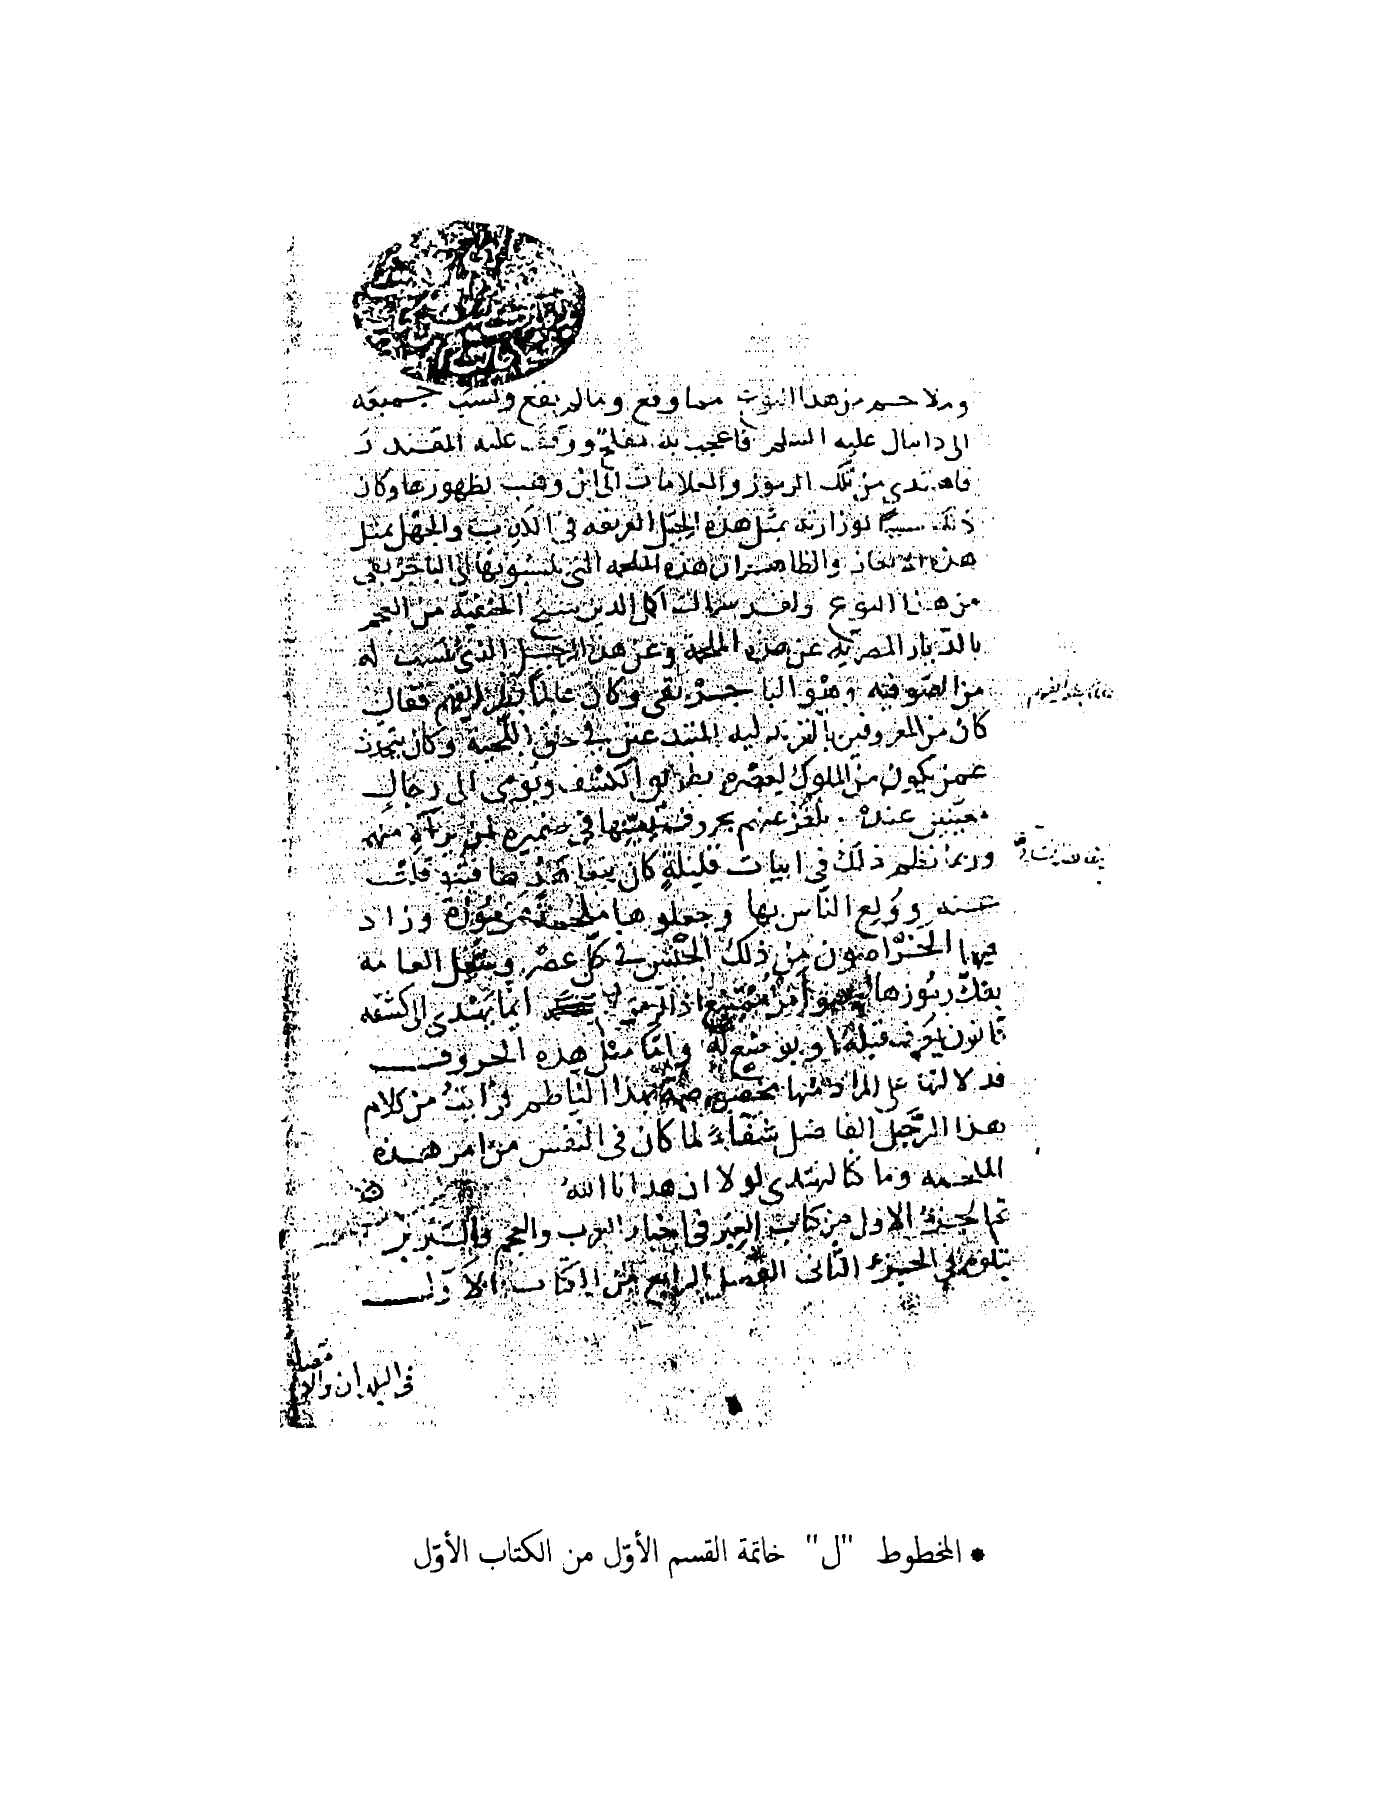 وملاحم من هذا النوع مما وقع ومما لم يقع ونسب جميعه
الى دانيال عليه السلم فاعجب به مفلح ووقف عليه المقتدر
فاهتدى من تلك الرموز والعلامات الى ابن وهب لظهورها وكان
ذلك سببا لوزارته بمثل هذه الحيل العريقه في الكذب والجهل بمثل
هذه الالغاز والظاهر ان هذه الملحمه التي ينسبونها الى الباجربقي
من هذا النوع ولقد سالت اكمل الدين شيخ الحنفيّة من العجم
بالدّيار المصريّة عن هذه الملحمة وعن هذا الرجل الذي تُنسَب له
من الصّوفيّه وهو الباجربقي وكان عالماً بطرايقهم فقال
كان من المعروفين بالقرندليه المبتدعين في حلق اللّحية وكان يتحدّث
عمن يكون من الملوك لعصره بطريق الكشف ويُومى الى رجال
معيّنين عنده ويلغز عنهم بحروف يُعيّنها في ضميره لمن يراه منهم
وربما نظم ذلك في ابيات قليلةٍ كان يتعاهدها فتنوقلت
عنه ووُلِع النّاس بها وجعلوها ملحمة مرموزة وزاد
فيها الخَرّاصون من ذلك الجنس في كلّ عصر وشغل العامه
بفكّ رموزها وهو أَمرٌ مُمتَنِع اذ الرمز انما يَهتدى الى كشفه
قانون يعرف قبله او يوضع له وامّا مثل هذه الحروف
فدلالتها على المراد منها مخصوصة بهذا النّاظم فرايت من كلام
هذا الرّجل الفاضل شفاءً لما كان في النفس من امر هذه
الملحمه وما كنّا لنهتدى لولا ان هدانا اللهُ
تم الجزءُ الاول من كتاب العِبَر في اخبار العرب والعجم والبَربَر
يتلوه في الجزء الثّاني الفصل الرابع من الكتاب الاوّل
في البلدان والا
• المخطوط "ل" خاتمة القسم الأوّل من الكتاب الأوّل